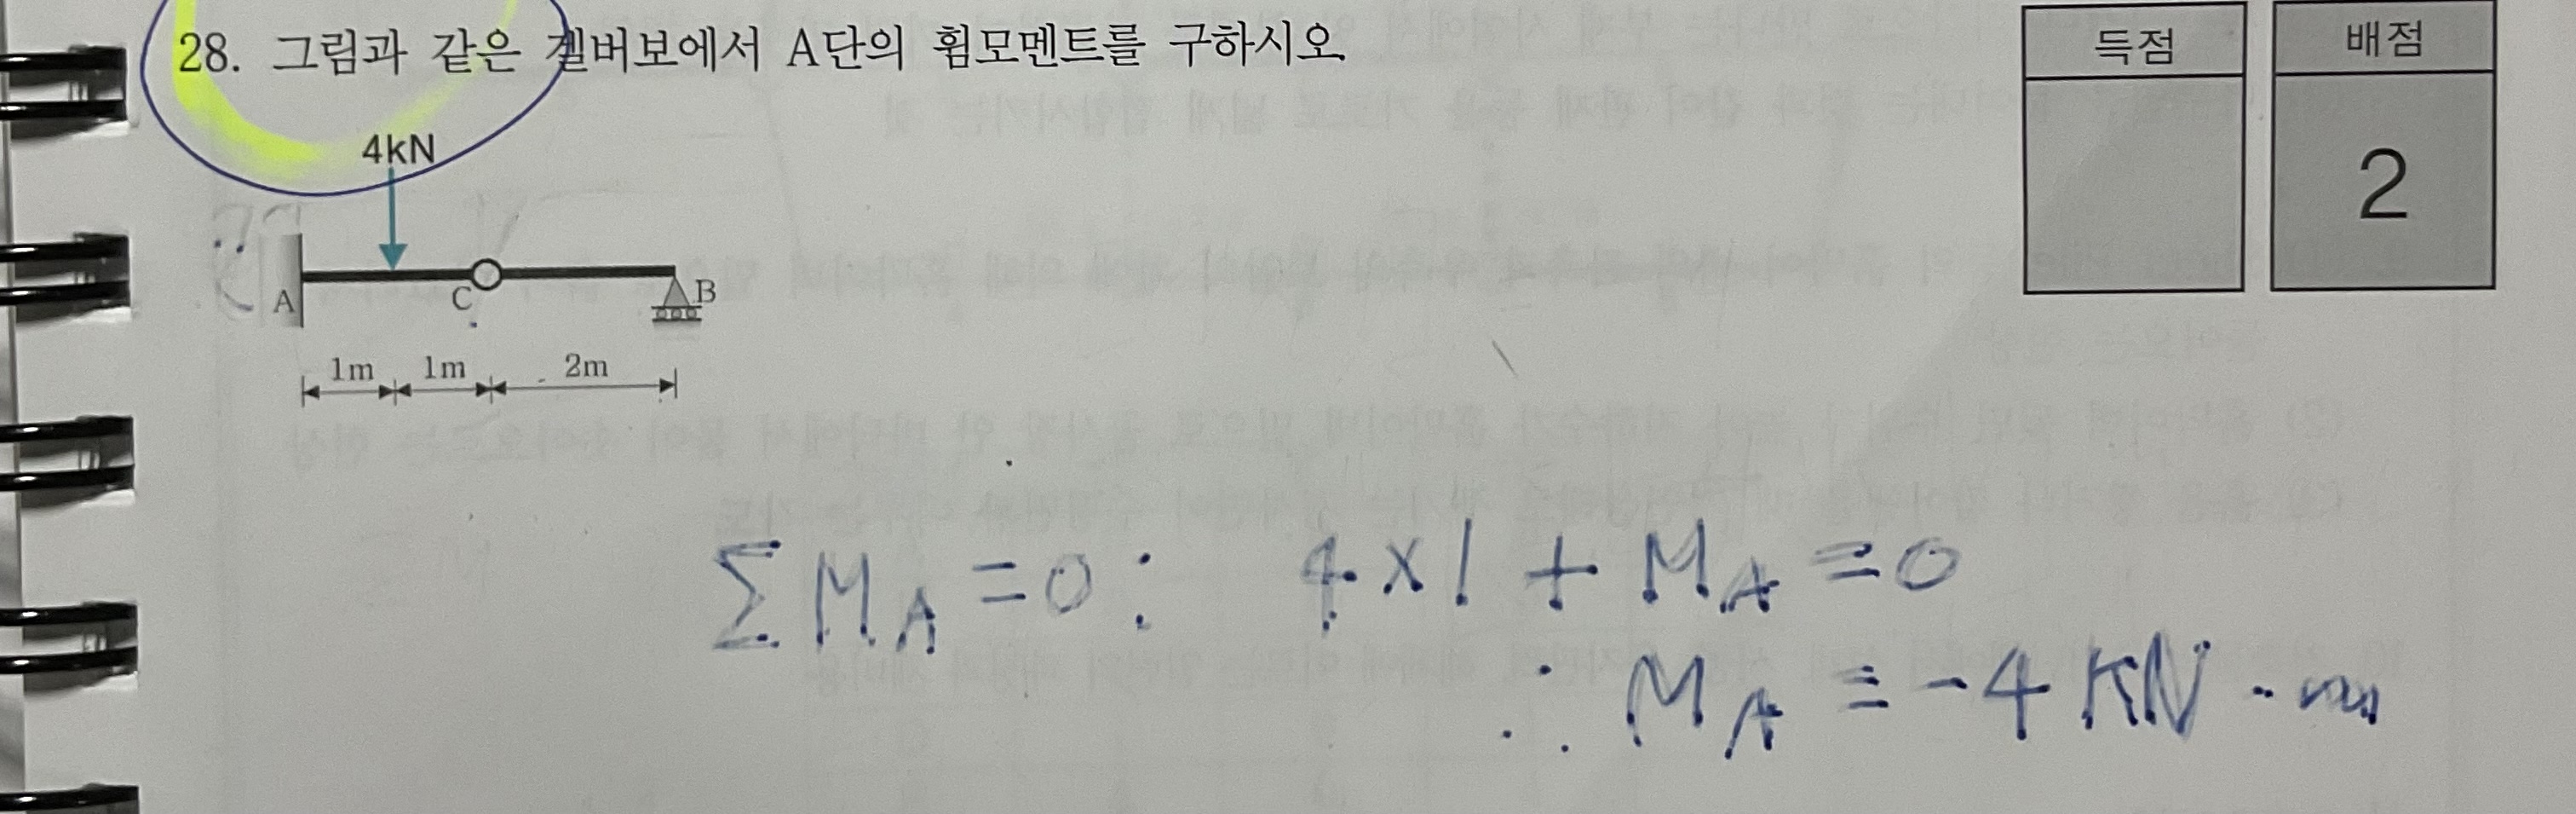 28. 그림과 같은 겔버보에서 A단의 휨모멘트를 구하시오.
득점 배점
2
4kN
A C B
1m 1m 2m
ΣMA=0: 4×1+MA=0
∴ MA=-4KN·m